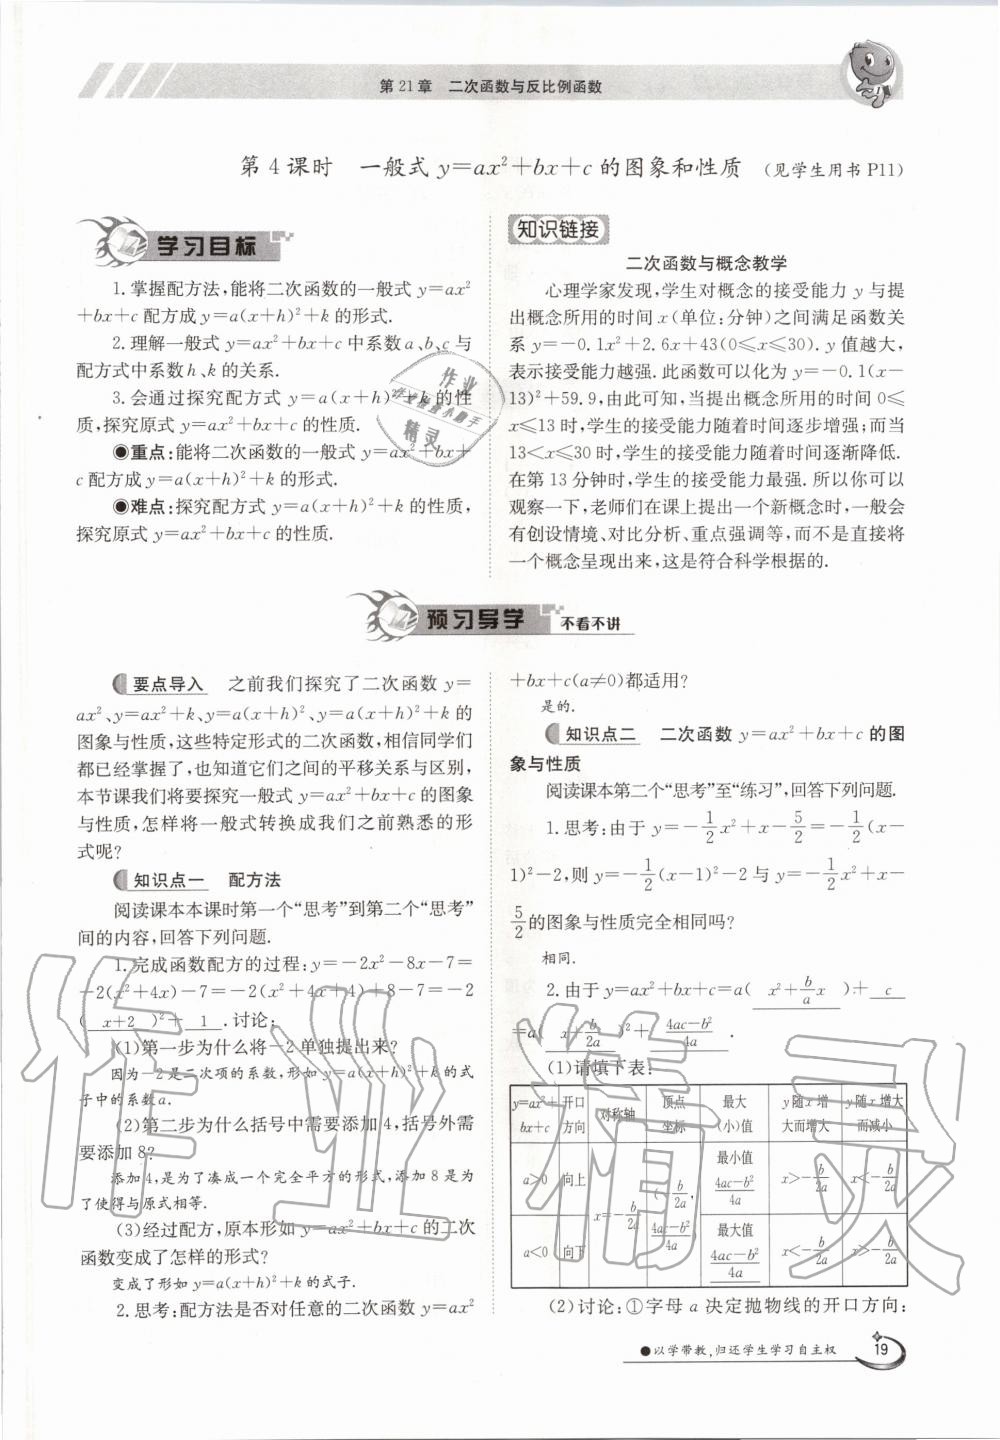 第21章　二次函数与反比例函数
第4课时　一般式 y=ax²+bx+c 的图象和性质 (见学生用书 P11)
学习目标
1.掌握配方法,能将二次函数的一般式 y=ax²
+bx+c 配方成 y=a(x+h)²+k 的形式.
2.理解一般式 y=ax²+bx+c 中系数 a、b、c 与
配方式中系数 h、k 的关系.
3.会通过探究配方式 y=a(x+h)²+k 的性
质,探究原式 y=ax²+bx+c 的性质.
◉重点:能将二次函数的一般式 y=ax²+bx+
c 配方成 y=a(x+h)²+k 的形式.
◉难点:探究配方式 y=a(x+h)²+k 的性质,
探究原式 y=ax²+bx+c 的性质.
知识链接
二次函数与概念教学
心理学家发现,学生对概念的接受能力 y 与提
出概念所用的时间 x(单位:分钟)之间满足函数关
系 y=-0.1x²+2.6x+43(0≤x≤30). y 值越大,
表示接受能力越强. 此函数可以化为 y=-0.1(x-
13)²+59.9,由此可知,当提出概念所用的时间 0≤
x≤13 时,学生的接受能力随着时间逐步增强;而当
13<x≤30 时,学生的接受能力随着时间逐渐降低.
在第 13 分钟时,学生的接受能力最强. 所以你可以
观察一下,老师们在课上提出一个新概念时,一般会
有创设情境、对比分析、重点强调等,而不是直接将
一个概念呈现出来,这是符合科学根据的.
预习导学 不看不讲
要点导入　之前我们探究了二次函数 y=
ax²、y=ax²+k、y=a(x+h)²、y=a(x+h)²+k 的
图象与性质,这些特定形式的二次函数,相信同学们
都已经掌握了,也知道它们之间的平移关系与区别,
本节课我们将要探究一般式 y=ax²+bx+c 的图象
与性质,怎样将一般式转换成我们之前熟悉的形
式呢?
知识点一　配方法
阅读课本本课时第一个“思考”到第二个“思考”
间的内容,回答下列问题.
1.完成函数配方的过程:y=-2x²-8x-7=
-2(x²+4x)-7=-2(x²+4x+4)+8-7=-2
( x+2 )²+ 1 .讨论:
(1)第一步为什么将-2 单独提出来?
因为-2 是二次项的系数,形如 y=a(x+h)²+k 的式
子中的系数 a.
(2)第二步为什么括号中需要添加 4,括号外需
要添加 8?
添加 4,是为了凑成一个完全平方的形式,添加 8 是为
了使得与原式相等.
(3)经过配方,原本形如 y=ax²+bx+c 的二次
函数变成了怎样的形式?
变成了形如 y=a(x+h)²+k 的式子.
2.思考:配方法是否对任意的二次函数 y=ax²
+bx+c(a≠0)都适用?
是的.
知识点二　二次函数 y=ax²+bx+c 的图
象与性质
阅读课本第二个“思考”至“练习”,回答下列问题.
1.思考:由于 y=-1/2x²+x-5/2=-1/2(x-
1)²-2,则 y=-1/2(x-1)²-2 与 y=-1/2x²+x-
5/2的图象与性质完全相同吗?
相同.
2.由于 y=ax²+bx+c=a( x²+b/a x )+ c
=a( x+b/2a )²+ (4ac-b²)/4a .
(1)请填下表:
y=ax²+bx+c 开口方向 对称轴 顶点坐标 最大(小)值 y 随 x 增大而增大 y 随 x 增大而减小
a>0 向上 x=-b/2a (-b/2a, (4ac-b²)/4a) 最小值 (4ac-b²)/4a x>-b/2a x<-b/2a
a<0 向下 最大值 (4ac-b²)/4a x<-b/2a x>-b/2a
(2)讨论:①字母 a 决定抛物线的开口方向:
●以学带教,归还学生学习自主权
19
作业
精灵
作业精灵